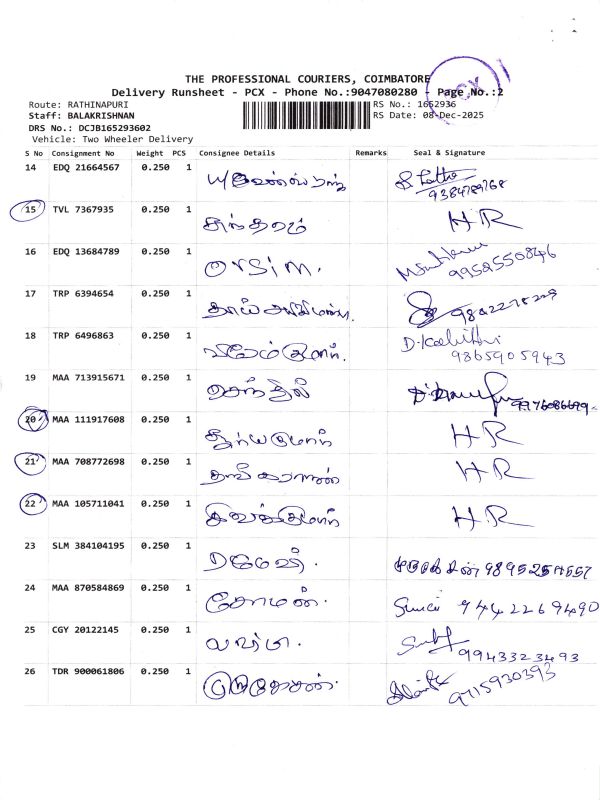 THE PROFESSIONAL COURIERS, COIMBATORE
Delivery Runsheet - PCX - Phone No.:9047080280 - Page No.:2
PCX
Route: RATHINAPURI RS No.: 1652936
Staff: BALAKRISHNAN RS Date: 08-Dec-2025
DRS No.: DCJB165293602
Vehicle: Two Wheeler Delivery
S No Consignment No Weight PCS Consignee Details Remarks Seal & Signature
14 EDQ 21664567 0.250 1 9384789768
15 TVL 7367935 0.250 1 சுந்தரம் HR
16 EDQ 13684789 0.250 1 9952550846
17 TRP 6394654 0.250 1
18 TRP 6496863 0.250 1 9865905943
19 MAA 713915671 0.250 1 செந்தில் 9976086699
20 MAA 111917608 0.250 1 HR
21 MAA 708772698 0.250 1 HR
22 MAA 105711041 0.250 1 சிவக்குமார் HR
23 SLM 384104195 0.250 1 ரமேஷ்.
24 MAA 870584869 0.250 1 சோமன். 9442269490
25 CGY 20122145 0.250 1 9943323493
26 TDR 900061806 0.250 1 முருகேசன். 9715930393